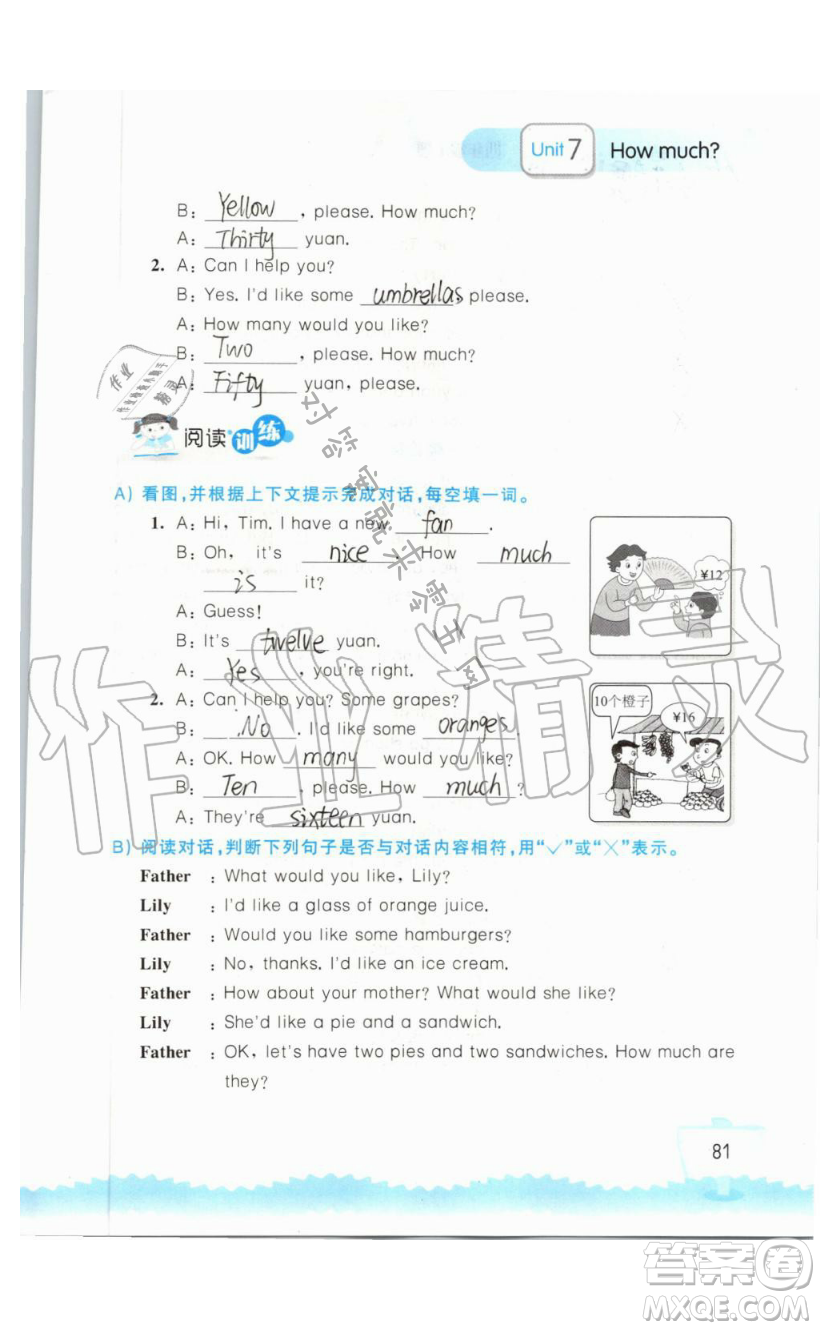 Unit 7 How much?
B: Yellow, please. How much?
A: Thirty yuan.
2. A: Can I help you?
B: Yes. I'd like some umbrellas please.
A: How many would you like?
B: Two, please. How much?
A: Fifty yuan, please.
阅读训练
A) 看图,并根据上下文提示完成对话,每空填一词。
1. A: Hi, Tim. I have a new fan.
B: Oh, it's nice. How much
is it?
A: Guess!
B: It's twelve yuan.
A: Yes, you're right.
¥12
2. A: Can I help you? Some grapes?
B: No. I'd like some oranges.
A: OK. How many would you like?
B: Ten, please. How much?
A: They're sixteen yuan.
10个橙子
¥16
B) 阅读对话,判断下列句子是否与对话内容相符,用“✓”或“×”表示。
Father: What would you like, Lily?
Lily: I'd like a glass of orange juice.
Father: Would you like some hamburgers?
Lily: No, thanks. I'd like an ice cream.
Father: How about your mother? What would she like?
Lily: She'd like a pie and a sandwich.
Father: OK, let's have two pies and two sandwiches. How much are
they?
81
作业精灵
对答案就来零五网
答案卷
MXQE.COM